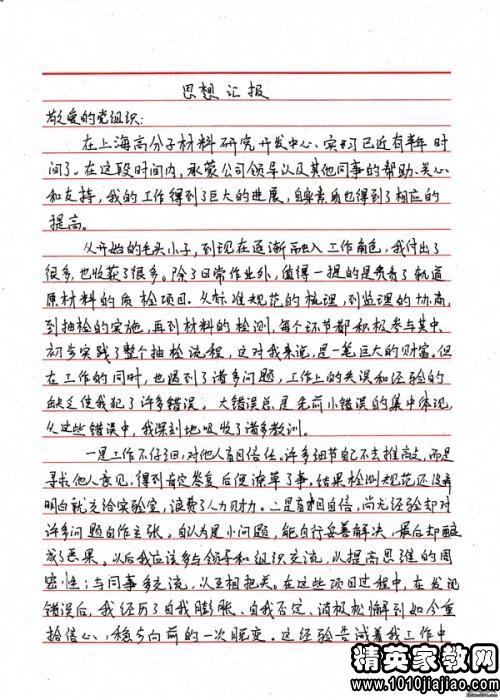 思想汇报
敬爱的党组织：
在上海高分子材料研究开发中心实习已近有半年时
间了。在这段时间内，承蒙公司领导以及其他同事的帮助、关心
和支持，我的工作得到了巨大的进展，自身素质也得到了相应的
提高。
从开始的毛头小子，到现在逐渐融入工作角色，我付出了
很多，也收获了很多。除了日常作业外，值得一提的是负责了轨道
原材料的质检项目。从标准规范的梳理，到监理的协商，
到抽检的实施，再到材料的检测，每个环节都积极参与其中，
初步实践了整个抽检流程，这对我来说，是一笔巨大的财富。但
在工作的同时，也遇到了诸多问题，工作上的失误和经验的
缺乏使我犯了许多错误。大错误总是先前小错误的集中体现，
从这些错误中，我深刻地吸收了诸多教训。
一是工作不仔细，对他人盲目信任。许多细节自己不去推高文，而是
寻求他人意见，得到肯定答复后便潦草了事。结果检测规范还没弄
明白就交给实验室，浪费了人力财力。二是盲目自信，尚无经验却对
许多问题自作主张。自认为是小问题，能自行妥善解决，最后却酿
成了恶果。以后我应该多与领导和组织交流，以提高思维的周
密性；与同事多交流，以互相把关。在这些项目过程中，在发现
错误后，我经历了自我膨胀、自我否定、消极松懈到如今重
拾信心、稳步向前的一次蜕变。这经验告诫着我工作中
精英家教网
www.1010jiajiao.com